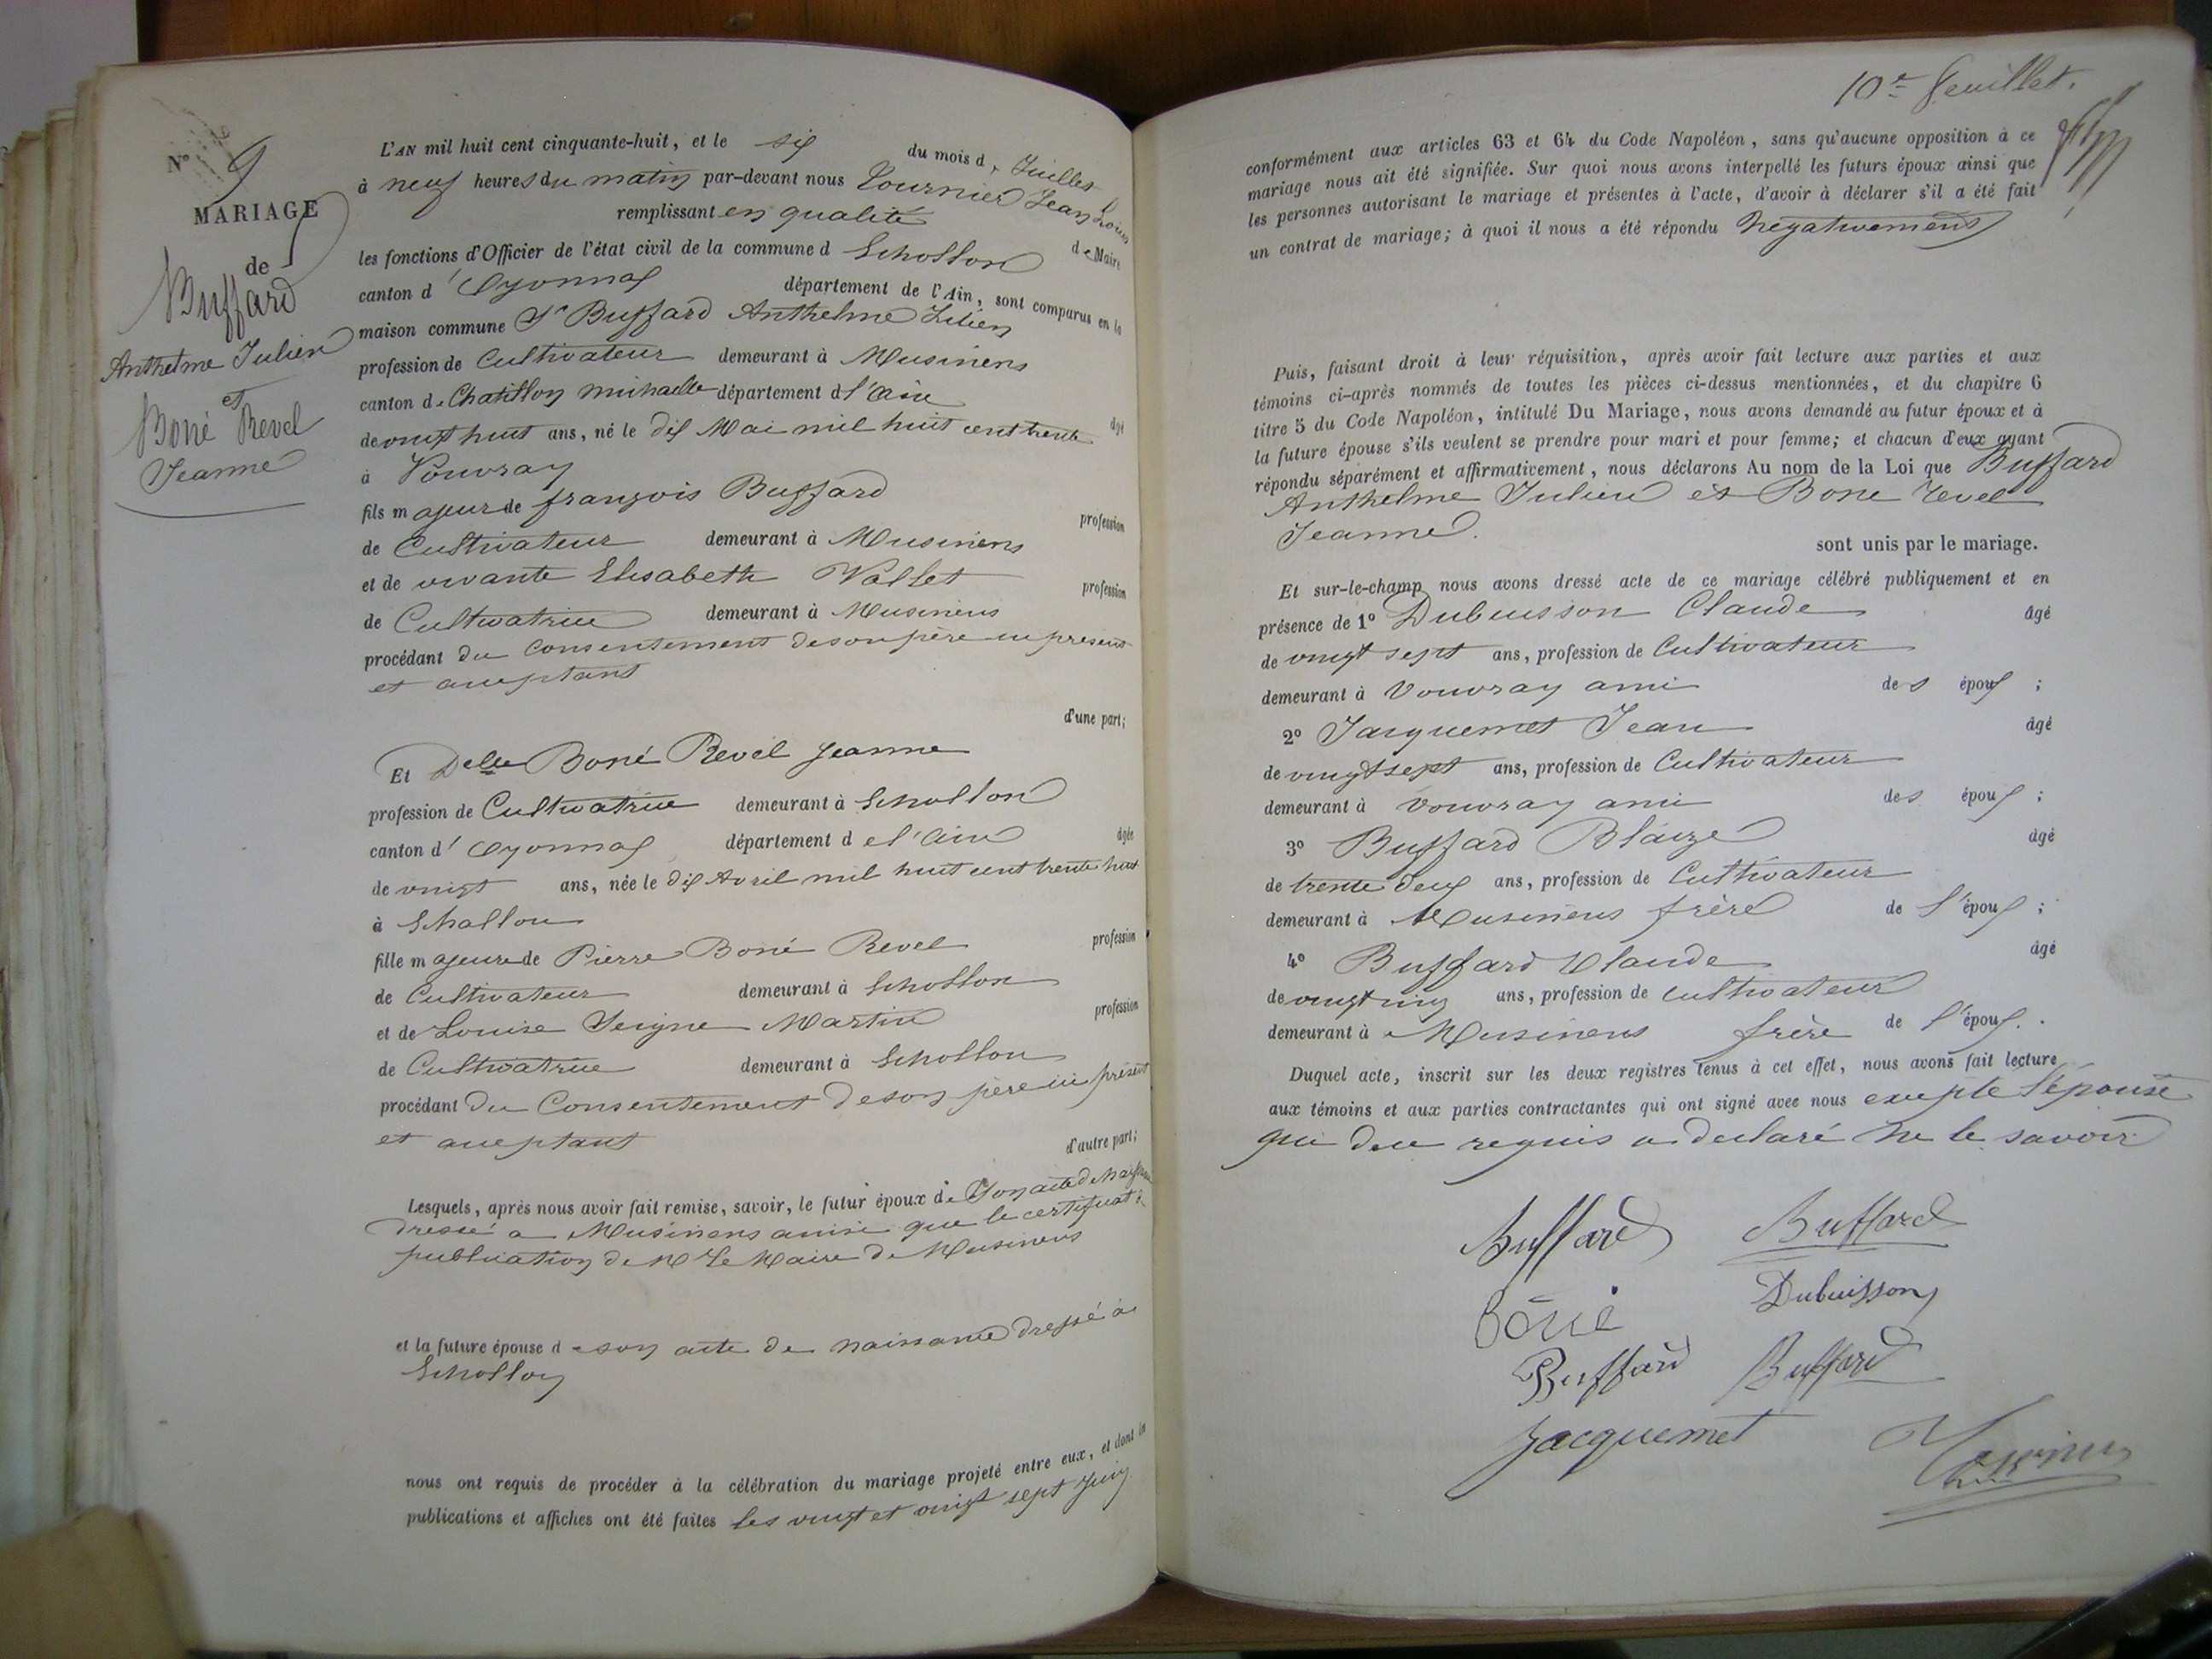 N° 9
MARIAGE
de
Buffard
Anthelme Julien
et
Boné Revel
Jeanne
L'AN mil huit cent cinquante-huit, et le six du mois de Juillet
à neuf heures du matin par-devant nous Tournier Jean Louis
remplissant en qualité de Maire
les fonctions d'Officier de l'état civil de la commune d Echollon
canton d' Oyonnax département de l'Ain, sont comparus en la
maison commune Sr Buffard Anthelme Julien
profession de Cultivateur demeurant à Musinens
canton de Chatillon michaille département d l'ain âgé
de vingt huit ans, né le dix Mai mil huit cent trente
à Vouvray
fils majeur de françois Buffard profession
de Cultivateur demeurant à Musinens
et de vivante Elisabeth Vallet profession
de Cultivatrice demeurant à Musinens
procédant du Consentement de son père ici présent
et acceptant
d'une part;
Et Delle Boné Revel Jeanne
profession de Cultivatrice demeurant à Echollon
canton d' Oyonnax département de l'ain âgée
de vingt ans, née le dix Avril mil huit cent trente huit
à Echallon
fille majeure de Pierre Boné Revel profession
de Cultivateur demeurant à Echollon
et de Louise Seigne Martin profession
de Cultivatrice demeurant à Echollon
procédant du Consentement de son père ici présent
et acceptant d'autre part;
Lesquels, après nous avoir fait remise, savoir, le futur époux de Son acte de Naissance
dressé a Musinens ainsi que le certificat de
publication de Mr Le Maire de Musinens
et la future épouse de son acte de naissance dressé à
Echollon
nous ont requis de procéder à la célébration du mariage projeté entre eux, et dont les
publications et affiches ont été faites les vingt et vingt sept Juin
10e feuillet.
conformément aux articles 63 et 64 du Code Napoléon, sans qu'aucune opposition à ce
mariage nous ait été signifiée. Sur quoi nous avons interpellé les futurs époux ainsi que
les personnes autorisant le mariage et présentes à l'acte, d'avoir à déclarer s'il a été fait
un contrat de mariage; à quoi il nous a été répondu Négativement
Puis, faisant droit à leur réquisition, après avoir fait lecture aux parties et aux
témoins ci-après nommés de toutes les pièces ci-dessus mentionnées, et du chapitre 6
titre 5 du Code Napoléon, intitulé Du Mariage, nous avons demandé au futur époux et à
la future épouse s'ils veulent se prendre pour mari et pour femme; et chacun d'eux ayant
répondu séparément et affirmativement, nous déclarons Au nom de la Loi que Buffard
Anthelme Julien et Boné revel
Jeanne.
sont unis par le mariage.
Et sur-le-champ nous avons dressé acte de ce mariage célébré publiquement et en
présence de 1° Dubuisson Claude âgé
de vingt sept ans, profession de Cultivateur
demeurant à Vouvray ami des époux ;
2° Jacquemet Jean âgé
de vingt sept ans, profession de Cultivateur
demeurant à Vouvray ami des époux ;
3° Buffard Blaize âgé
de trente deux ans, profession de Cultivateur
demeurant à Musinens frère de l'époux ;
4° Buffard Claude âgé
de vingt cinq ans, profession de cultivateur
demeurant à Musinens frère de l'époux.
Duquel acte, inscrit sur les deux registres tenus à cet effet, nous avons fait lecture
aux témoins et aux parties contractantes qui ont signé avec nous excepté l'épouse
qui de ce requis a déclaré ne le savoir
Buffard Buffard
Bône Dubuisson
Buffard Buffard
Jacquemet